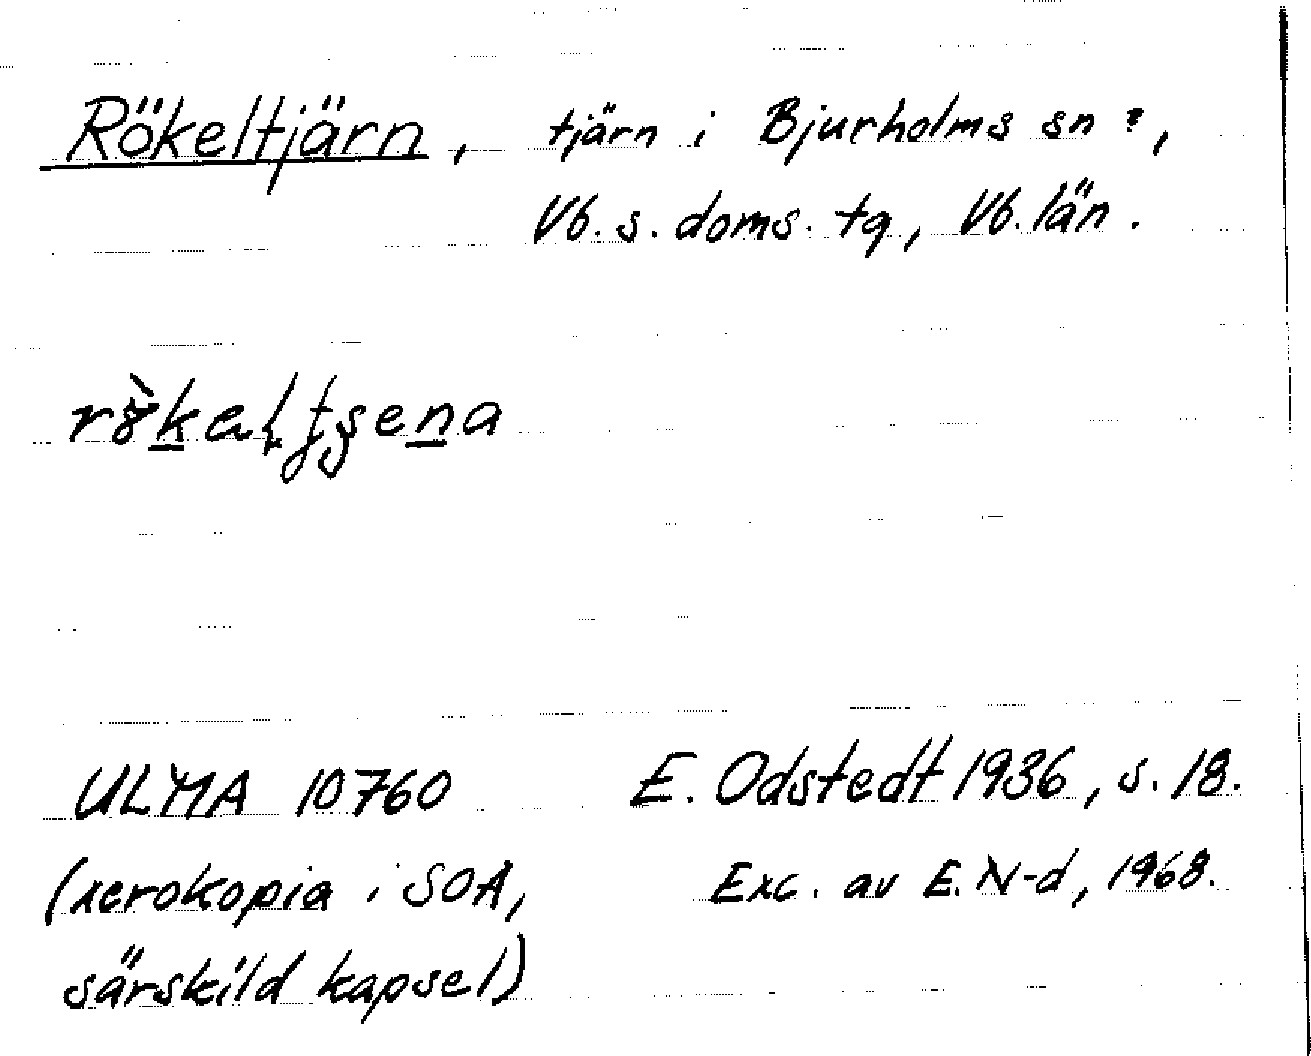 Rökeltjärn, tjärn i Bjurholms sn?,
Vb. s. doms. tg, Vb. län.
ULMA 10760 E. Odstedt 1936, s. 18.
(xerokopia i SOA, Exc. av E. N-d, 1968.
särskild kapsel)